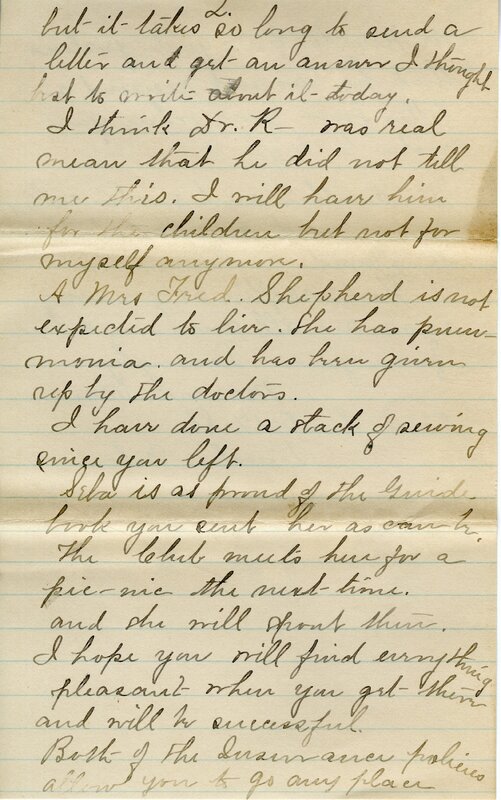 2.
but it takes so long to send a
letter and get an answer I thought
best to write about it today.
I think Dr. R— was real
mean that he did not tell
me this. I will have him
for the children but not for
myself anymore.
A Mrs Fred. Shepherd is not
expected to live. She has pneu-
monia. and has been given
up by the doctors.
I have done a stack of sewing
since you left.
Seba is as proud of the Guide
book you sent her as can be.
The Club meets here for a
pic-nic the next time.
and she will spout then.
I hope you will find everything
pleasant when you get there
and will be successful.
Both of the Insurance policies
allow you to go any place